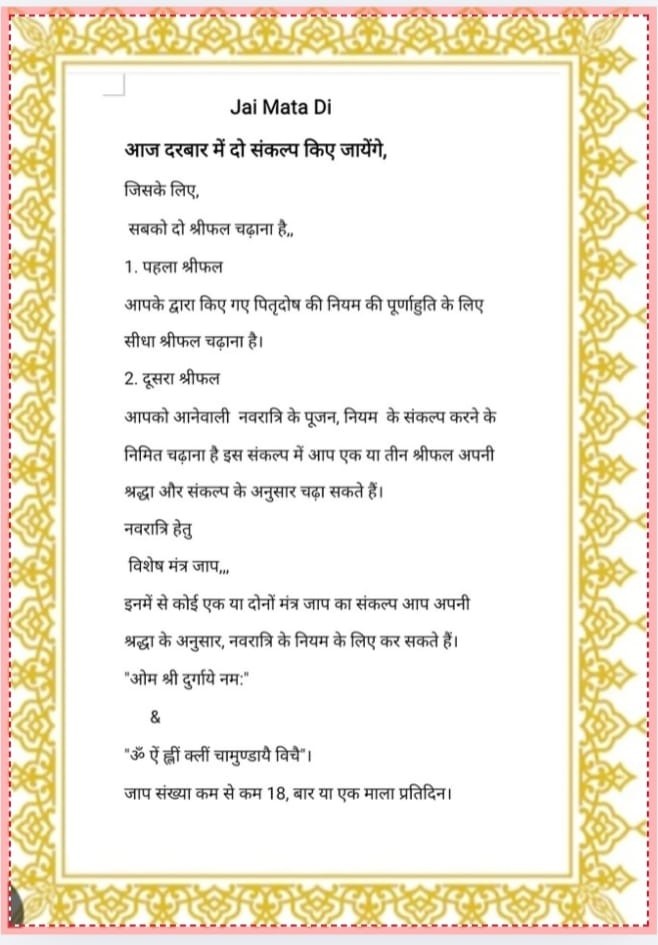 Jai Mata Di
आज दरबार में दो संकल्प किए जायेंगे,
जिसके लिए,
सबको दो श्रीफल चढ़ाना है,,
1. पहला श्रीफल
आपके द्वारा किए गए पितृदोष की नियम की पूर्णाहुति के लिए
सीधा श्रीफल चढ़ाना है।
2. दूसरा श्रीफल
आपको आनेवाली नवरात्रि के पूजन, नियम के संकल्प करने के
निमित चढ़ाना है इस संकल्प में आप एक या तीन श्रीफल अपनी
श्रद्धा और संकल्प के अनुसार चढ़ा सकते हैं।
नवरात्रि हेतु
विशेष मंत्र जाप,,,
इनमें से कोई एक या दोनों मंत्र जाप का संकल्प आप अपनी
श्रद्धा के अनुसार, नवरात्रि के नियम के लिए कर सकते हैं।
"ओम श्री दुर्गाये नम:"
&
"ॐ ऐं ह्लीं क्लीं चामुण्डायै विचै"।
जाप संख्या कम से कम 18, बार या एक माला प्रतिदिन।